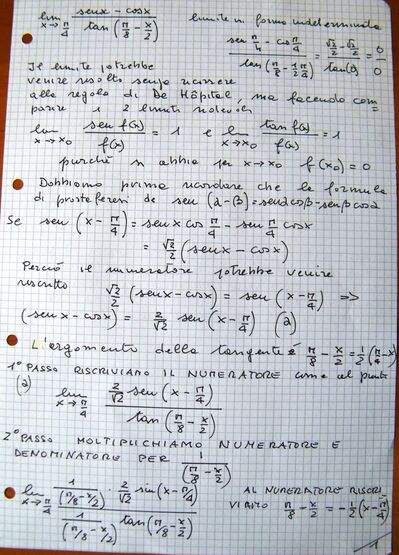 lim x→π/4 (senx - cosx)/(tan(π/8 - x/2)) limite in forma indeterminata
(sen π/4 - cos π/4)/(tan(π/8 - 1/2 π/4)) = (√2/2 - √2/2)/(tan(0)) = 0/0
Il limite potrebbe
venire risolto senza ricorrere
alla regola di De Hôpital, ma facendo com
parire i 2 limiti notevoli
lim x→x₀ sen f(x)/f(x) = 1 e lim x→x₀ tan f(x)/f(x) = 1
purché si abbia per x→x₀ f(x₀) = 0
Dobbiamo prima ricordare che la formula
di prostaferesi de sen (α-β) = senα cosβ - senβ cosα
Se sen (x - π/4) = sen x cos π/4 - sen π/4 cosx
= √2/2 (senx - cosx)
Perciò il numeratore potrebbe venire
riscritto √2/2 (senx - cosx) = sen (x - π/4) =>
(senx - cosx) = 2/√2 sen (x - π/4) (2)
L'argomento della tangente è π/8 - x/2 = 1/2 (π/4 - x)
1° PASSO RISCRIVIAMO IL NUMERATORE come al punto
(2) lim x→π/4 (2/√2 sen (x - π/4))/(tan (π/8 - x/2))
2° PASSO MOLTIPLICHIAMO NUMERATORE E
DENOMINATORE PER 1/(π/8 - x/2)
lim x→π/4 (1/(π/8 - x/2) · 2/√2 sin(x - π/4))/(1/(π/8 - x/2) tan(π/8 - x/2)) AL NUMERATORE RISCRI
VIAMO π/8 - x/2 = -1/2 (x - π/4)
1